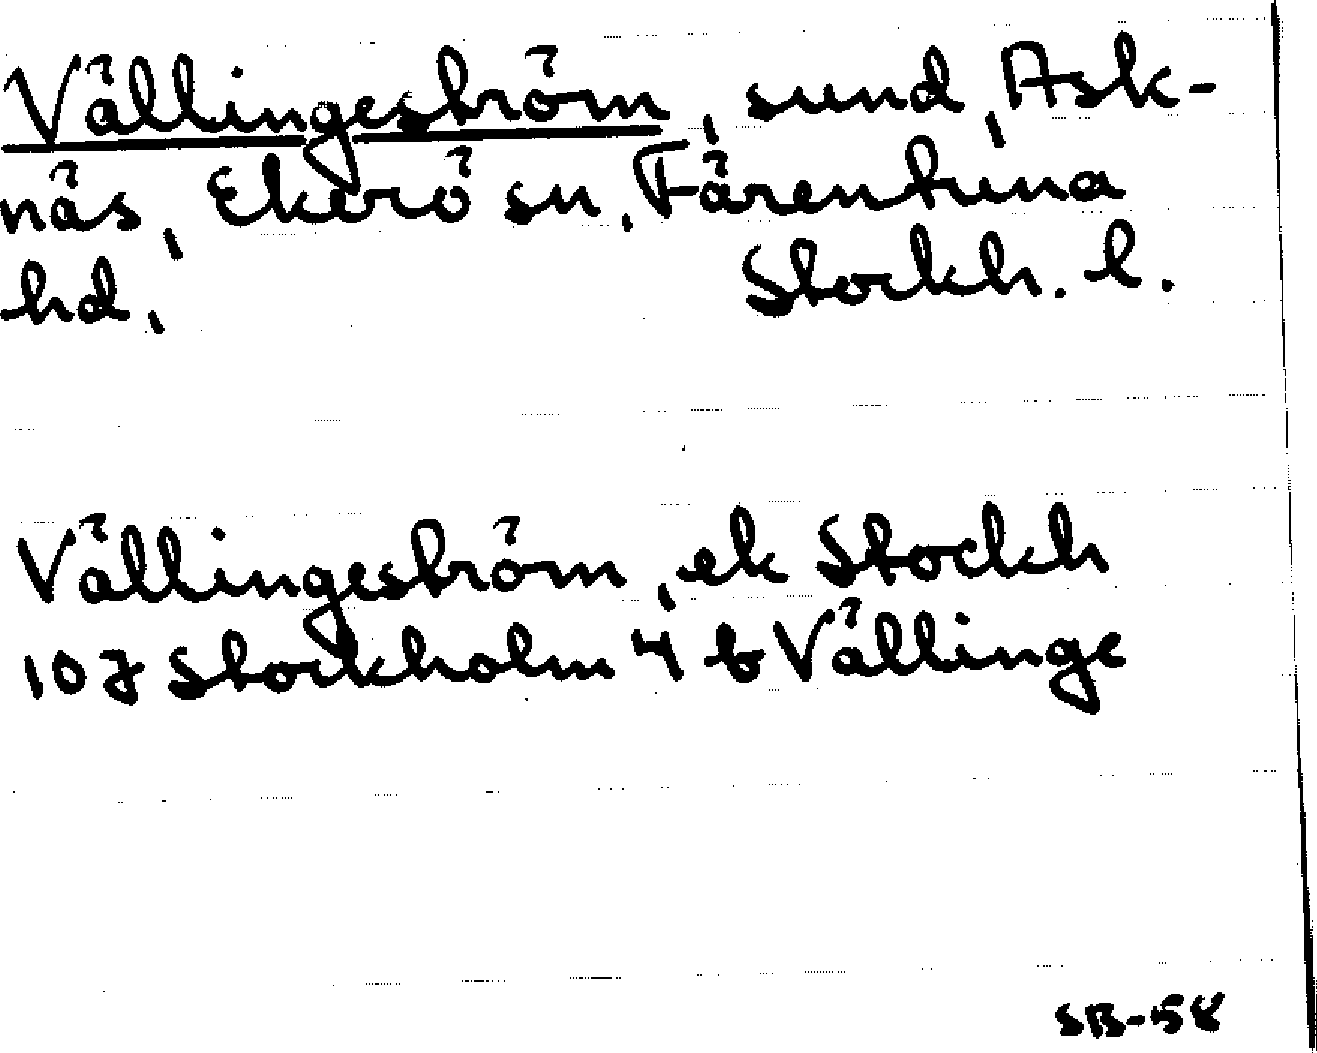 Vällingeström, sund, Ask-
näs, Ekerö sn, Färentuna
hd, Stockh. l.
Vällingeström, ek Stockh
10 J Stockholm 4 b Vällinge
SB-58